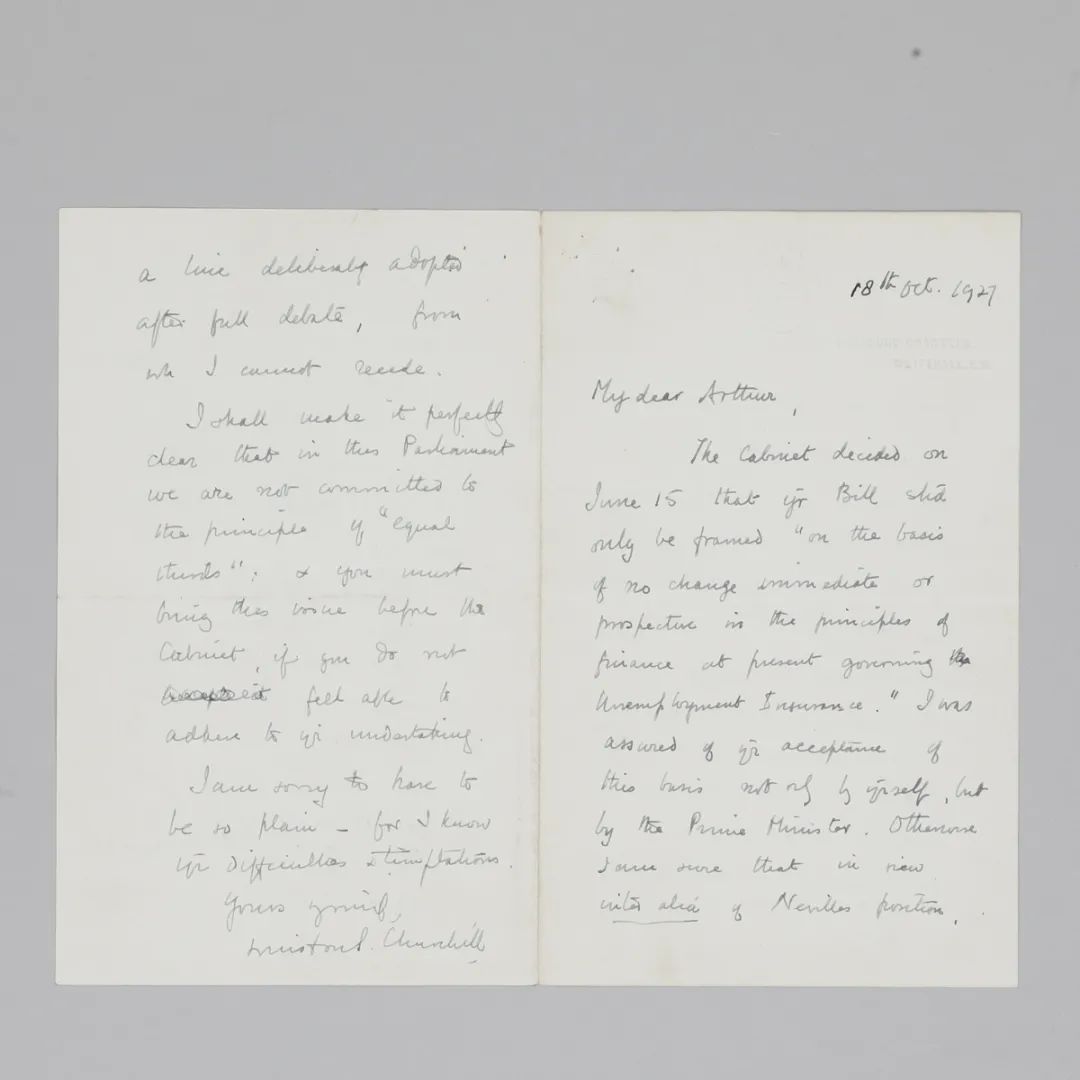 18th Oct. 1927
My dear Arthur,
The Cabinet decided on
June 15 that yr Bill shd
only be framed "on the basis
of no change immediate or
prospective in the principles of
finance at present governing the
Unemployment Insurance." I was
assured of yr acceptance of
this basis not only by yrself, but
by the Prime Minister. Otherwise
I am sure that in view
inter alia of Nevilles position,
a line deliberately adopted
after full debate, from
wh I cannot recede.
I shall make it perfectly
clear that in this Parliament
we are not committed to
the principle of "equal
thirds"; & you must
bring this issue before the
Cabinet, if you do not
feel able to
adhere to yr undertaking.
I am sorry to have to
be so plain – for I know
yr difficulties & temptations.
Yours
Winston S. Churchill